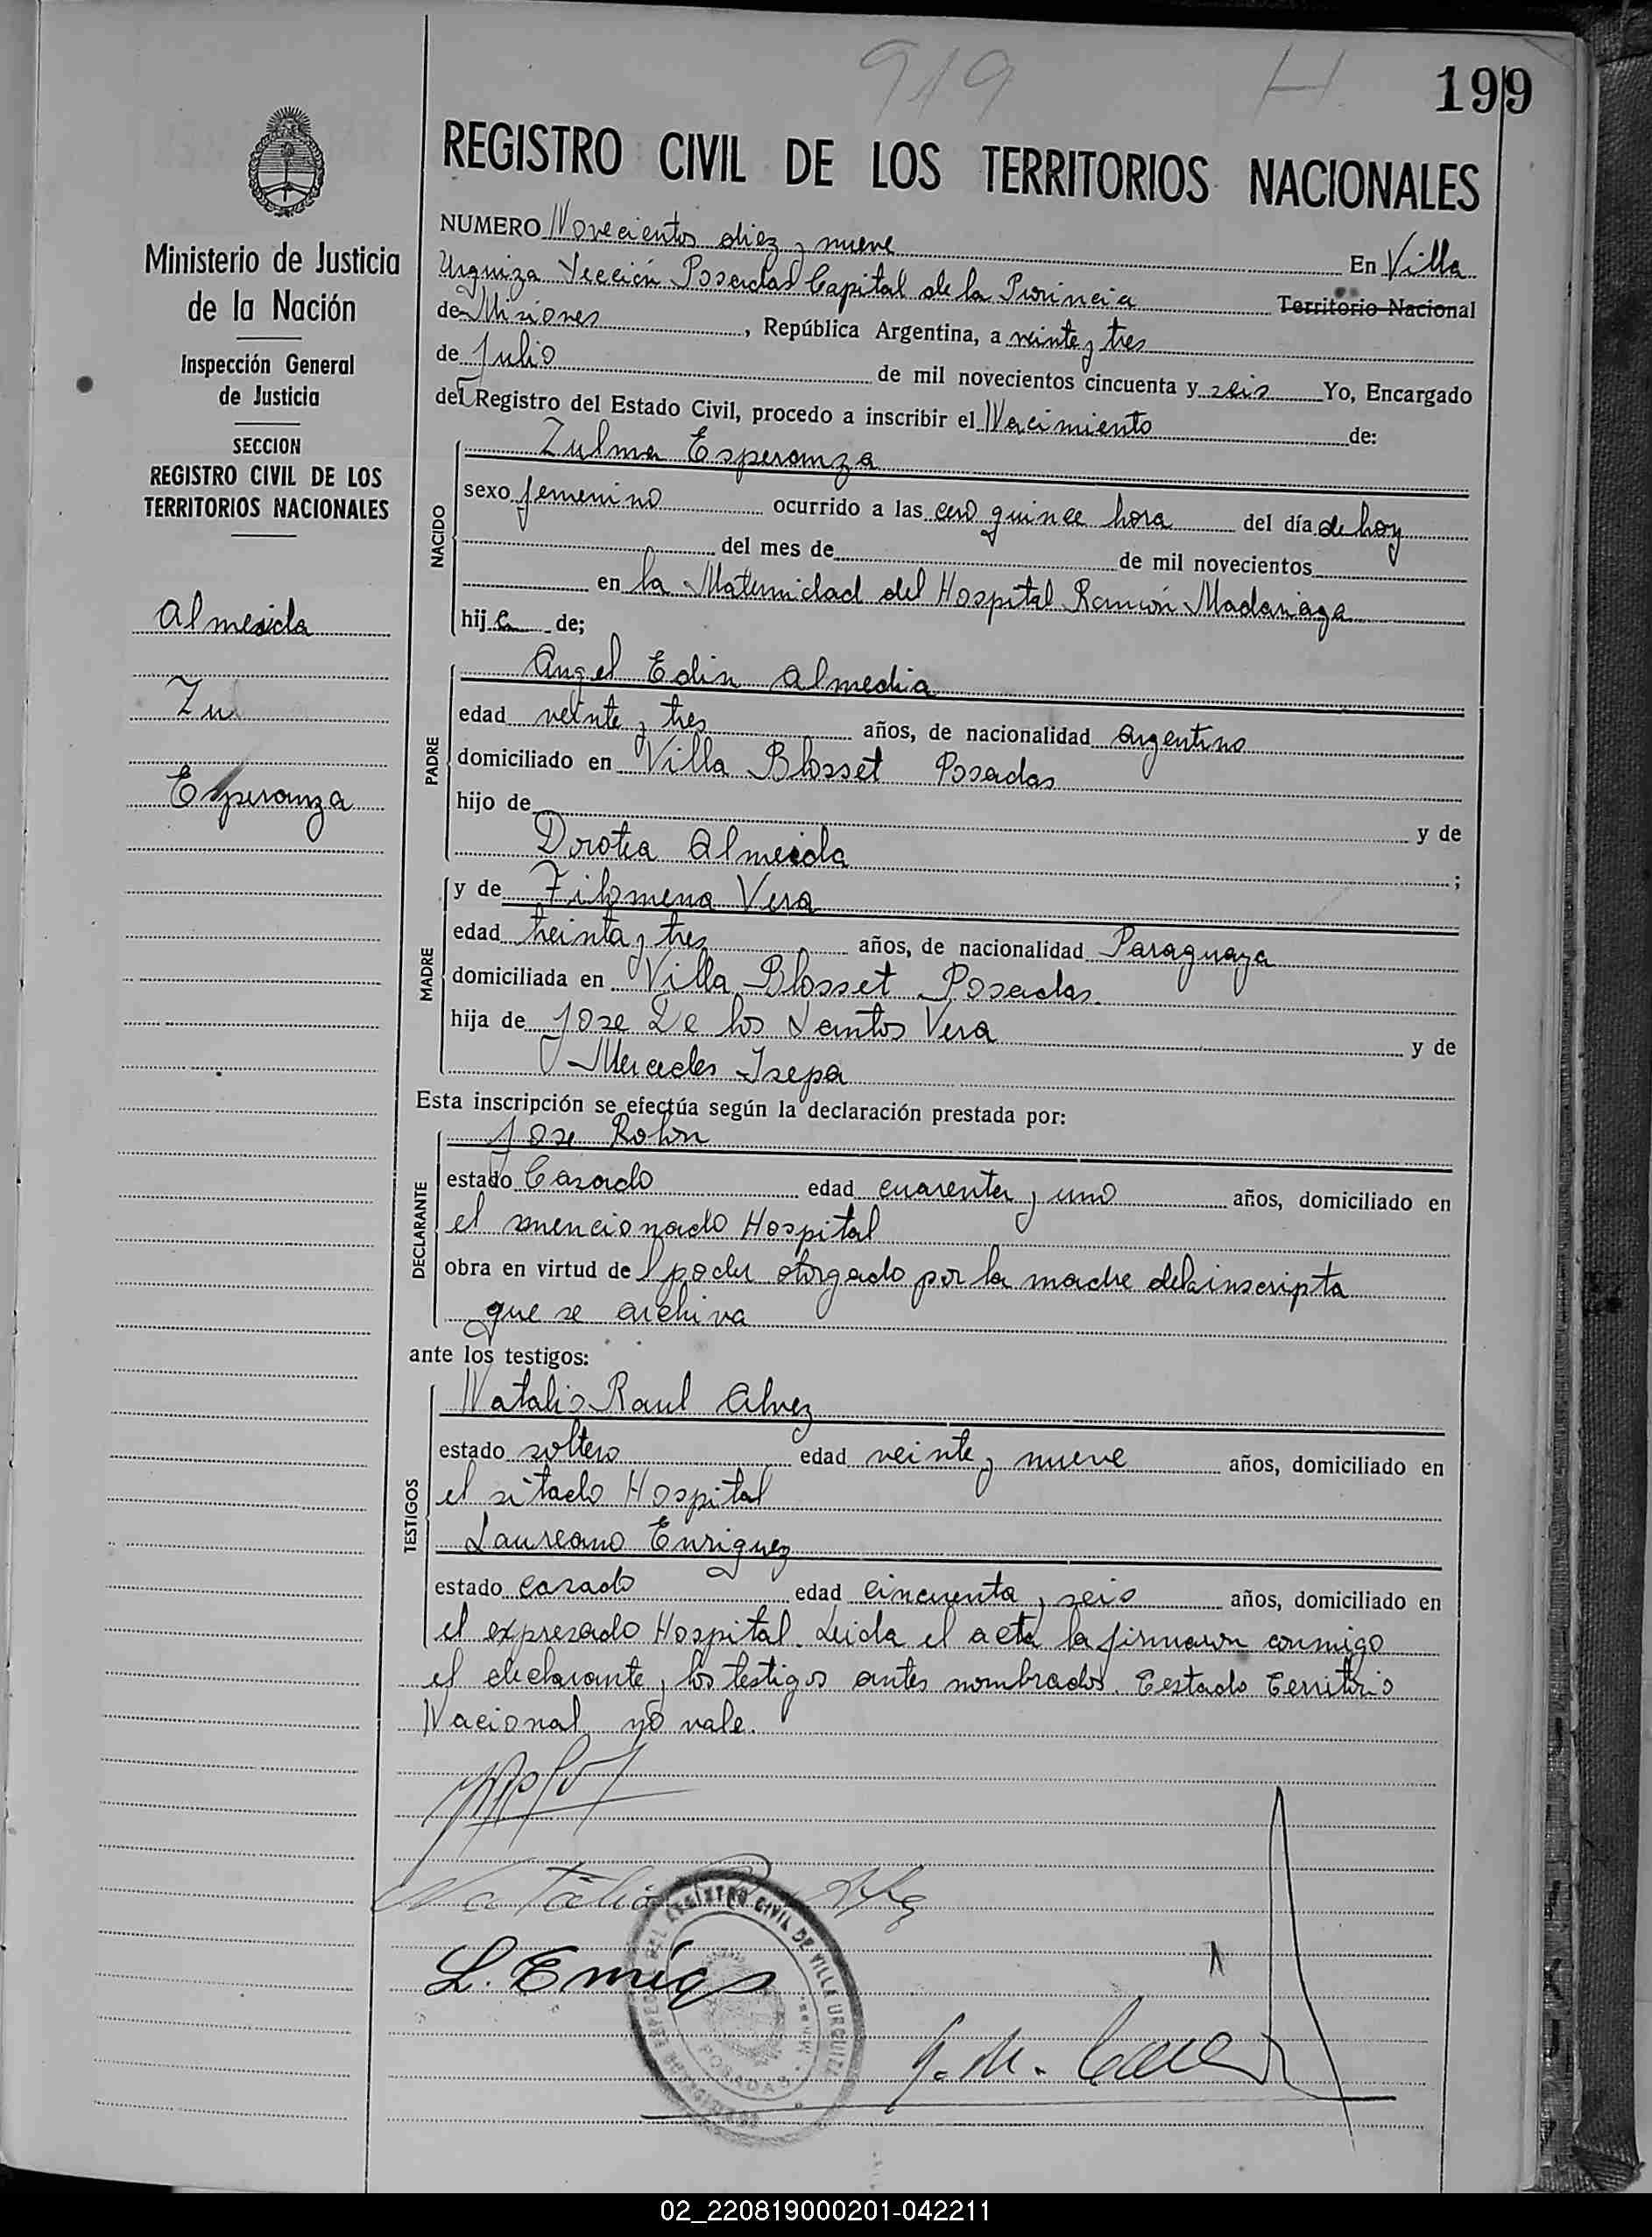 919 H
199
REGISTRO CIVIL DE LOS TERRITORIOS NACIONALES
Ministerio de Justicia
de la Nación
Inspección General
de Justicia
SECCION
REGISTRO CIVIL DE LOS
TERRITORIOS NACIONALES
Almeida
Zu
Esperanza
NUMERO Novecientos diez y nueve En Villa
Urquiza Sección Posadas Capital de la Provincia Territorio Nacional
de Misiones, República Argentina, a veinte y tres
de Julio de mil novecientos cincuenta y seis Yo, Encargado
del Registro del Estado Civil, procedo a inscribir el Nacimiento de:
NACIDO
Zulma Esperanza
sexo femenino ocurrido a las cero quince hora del día de hoy
del mes de de mil novecientos
en la Maternidad del Hospital Ramón Madariaga
hija de;
PADRE
Angel Edin Almedia
edad veinte y tres años, de nacionalidad Argentino
domiciliado en Villa Blosset Posadas
hijo de y de
Dorotea Almeida ;
MADRE
y de Filomena Vera
edad treinta y tres años, de nacionalidad Paraguaya
domiciliada en Villa Blosset Posadas.
hija de Jose De los Santos Vera y de
Mercedes Isepa
Esta inscripción se efectúa según la declaración prestada por:
DECLARANTE
Jose Rolon
estado Casado edad cuarenta y uno años, domiciliado en
el mencionado Hospital
obra en virtud del poder otorgado por la madre de la inscripta
que se archiva
ante los testigos:
TESTIGOS
Natalio Raul Alvez
estado soltero edad veinte y nueve años, domiciliado en
el sitado Hospital
Laureano Enriquez
estado casado edad cincuenta y seis años, domiciliado en
el expresado Hospital. Leida el acta la firmaron conmigo
el declarante y los testigos antes nombrados. Testado Territorio
Nacional no vale.
Natalio
L. Enriqz
REGISTRO CIVIL DE VILLA URQUIZA
POSADAS
02_220819000201-042211